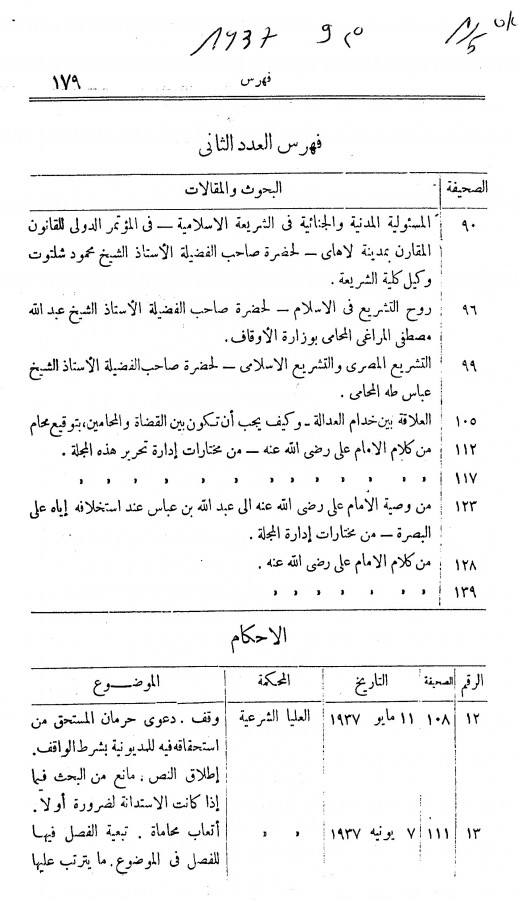 ١٩٣٧ ٩
فهرس ١٧٩
فهرس العدد الثانى
الصحيفة البحوث والمقالات
٩٠ المسئولية المدنية والجنائية فى الشريعة الاسلامية — فى المؤتمر الدولى للقانون
المقارن بمدينة لاهاى — لحضرة صاحب الفضيلة الأستاذ الشيخ محمود شلتوت
وكيل كلية الشريعة .
٩٦ روح التشريع فى الاسلام — لحضرة صاحب الفضيلة الأستاذ الشيخ عبد الله
مصطفى المراغى المحامى بوزارة الأوقاف .
٩٩ التشريع المصرى والتشريع الاسلامى — لحضرة صاحب الفضيلة الأستاذ الشيخ
عباس طه المحامى .
١٠٥ العلاقة بين خدام العدالة - وكيف يجب أن تكون بين القضاة والمحامين، بتوقيع محام
١١٢ من كلام الامام على رضى الله عنه — من مختارات إدارة تحرير هذه المجلة .
١١٧ , , , , , , , , , , , ,
١٢٣ من وصية الأمام على رضى الله عنه الى عبد الله بن عباس عند استخلافه إياه على
البصرة — من مختارات إدارة المجلة .
١٢٨ من كلام الامام على رضى الله عنه .
١٣٩ , , , , , , ,
الاحكام
الرقم الصحيفة التاريخ المحكمة الموضوع
١٢ ١٠٨ ١١ مايو ١٩٣٧ العليا الشرعية وقف . دعوى حرمان المستحق من
استحقاقه فيه للمديونية بشرط الواقف.
إطلاق النص ، مانع من البحث فيما
إذا كانت الاستدانة لضرورة أولا .
١٣ ١١١ ٧ يونيه ١٩٣٧ , , أتعاب محاماة . تبعية الفصل فيها
للفصل فى الموضوع. ما يترتب عليها